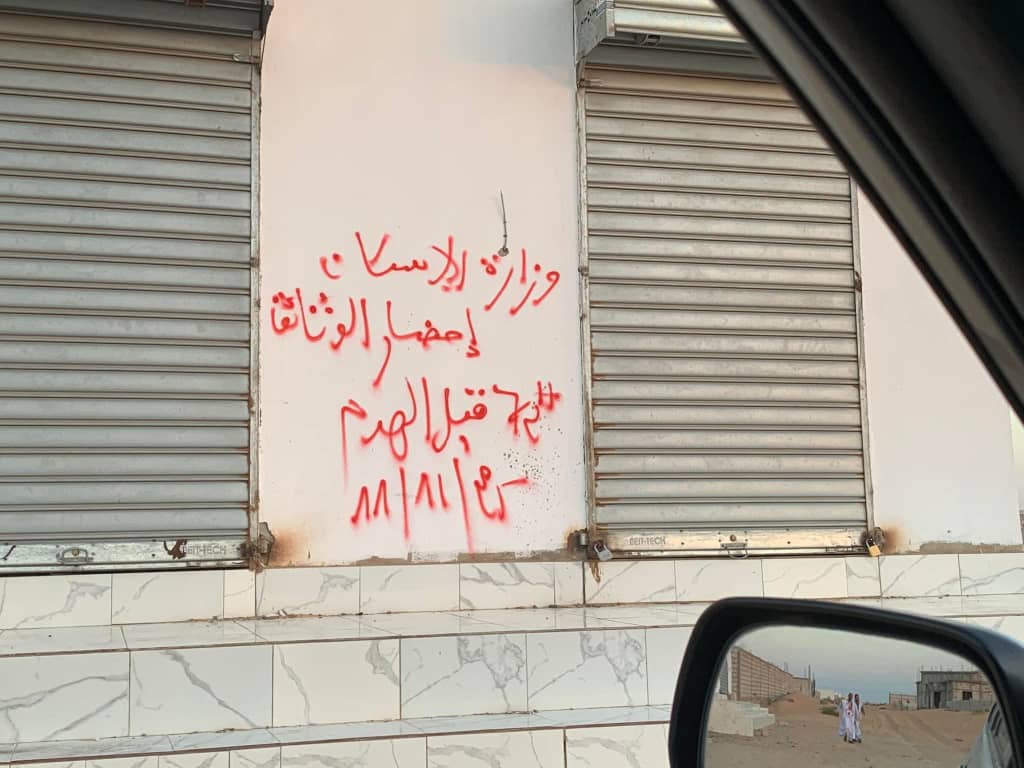 وزارة الإسكان
إحضار الوثائق
قبل الهدم
BEIT-TECH
BEIT-TECH